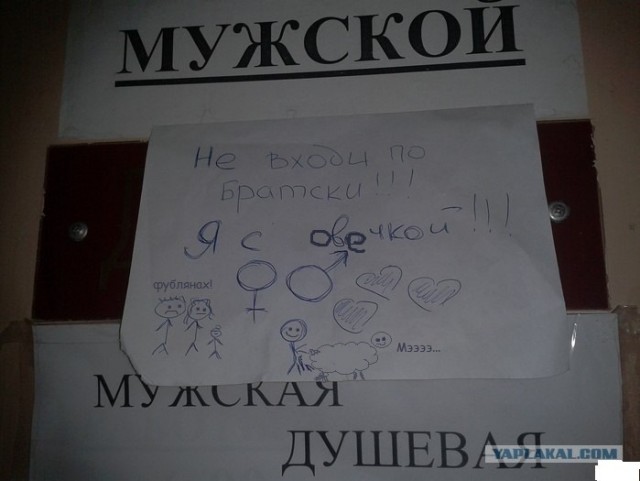 МУЖСКОЙ
Не входи по
Братски!!!
Я с овечкой!!!
фублянах!
Мэээз...
МУЖСКАЯ
ДУШЕВАЯ
YAPLAKAL.COM